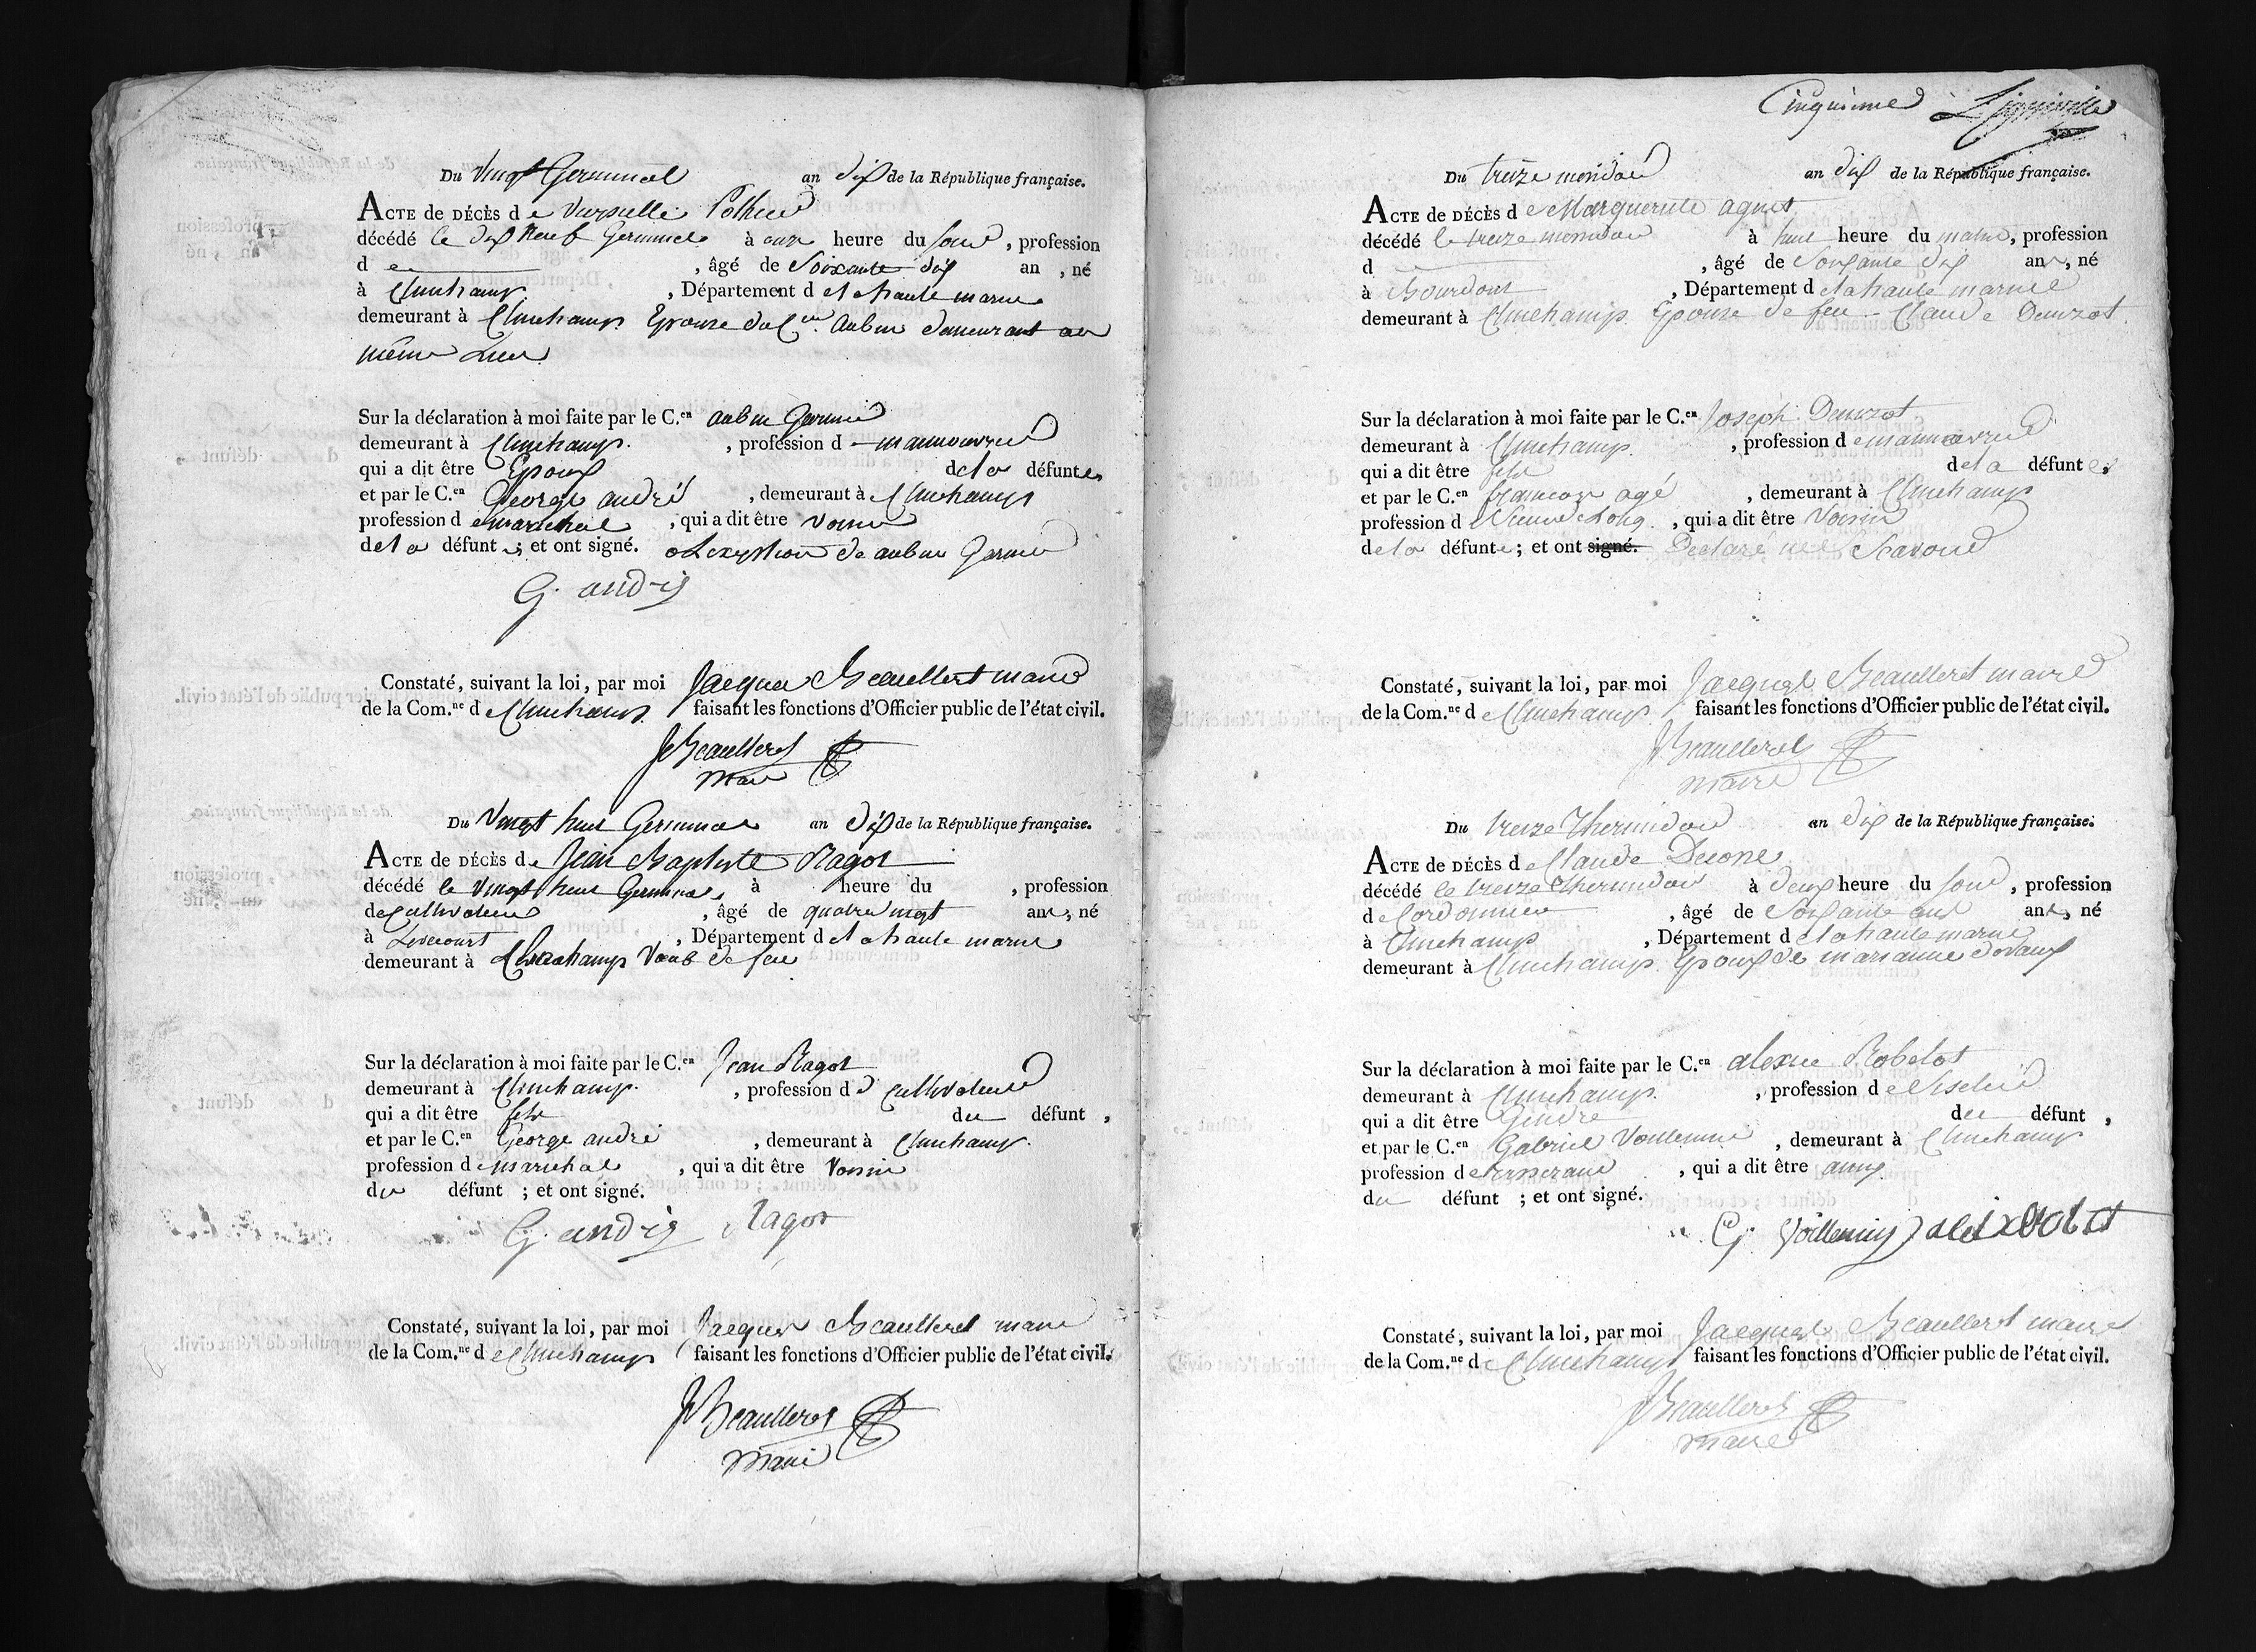 Du Vingt Germinal an dix de la République française.
ACTE de DÉCÈS de Pothier
décédé le dix Neuf Germinal à onze heure du soir, profession
d e , âgé de Soixante dix an , né
à Clinchamp , Département de la haute marne
demeurant à Clinchamp Epouse du C.en Aubin demeurant au
même Lieu
Sur la déclaration à moi faite par le C.en aubin Garnier
demeurant à Clinchamp. , profession d manouvrier
qui a dit être Epoux de la défunte,
et par le C.en George andré , demeurant à Clinchamp
profession de marichal , qui a dit être voisin
de la défunte ; et ont signé. a Lexeption de aubin Garnier
G. andrÿ
Constaté, suivant la loi, par moi Jacques Beaulleret maire
de la Com.ne de Clinchamp faisant les fonctions d'Officier public de l'état civil.
JBeaulleret
maire
Du Vingt huit Germinal an Dix de la République française.
ACTE de DÉCÈS de Jean Baptiste Ragot
décédé le Vingt huit Germinal, à heure du , profession
de cultivateur , âgé de quatre vingt ans, né
à Levecourt , Département de la haute marne
demeurant à Clinchamp Veuf de feu
Sur la déclaration à moi faite par le C.en Jean Ragot
demeurant à Clinchamp. , profession d cultivateur
qui a dit être fils du défunt ,
et par le C.en George andré , demeurant à Clinchamp.
profession de marichal , qui a dit être Voisin
du défunt ; et ont signé.
G. andrÿ Ragot
Constaté, suivant la loi, par moi Jacques Beaulleret maire
de la Com.ne de Clinchamp faisant les fonctions d'Officier public de l'état civil.
JBeaulleret
maire
Cinquieme
Du treize messidor an dix de la République française.
ACTE de DÉCÈS de Marguerite
décédé le treize messidor à huit heure du matin, profession
d , âgé de Soixante dix ans, né
à Bourdons , Département de la haute marne
demeurant à Clinchamp Epouse de feu Claude
Sur la déclaration à moi faite par le C.en Joseph
demeurant à Clinchamp. , profession de manouvrier
qui a dit être fils de la défunte,
et par le C.en francois agé , demeurant à Clinchamp
profession de , qui a dit être Voisin
de la défunte ; et ont signé. Declaré ne Scavoir
Constaté, suivant la loi, par moi Jacques Beaulleret maire
de la Com.ne de Clinchamp faisant les fonctions d'Officier public de l'état civil.
JBeaulleret
maire
Du treize Thermidor an dix de la République française.
ACTE de DÉCÈS de Claude
décédé le treize thermidor à deux heure du soir , profession
de Cordonnier , âgé de Soixante ans, né
à Clinchamp , Département de la haute marne
demeurant à Clinchamp Epoux de marianne
Sur la déclaration à moi faite par le C.en alexis Robelot
demeurant à Clinchamp. , profession de
qui a dit être Gendre du défunt ,
et par le C.en Gabriel Voillemin , demeurant à Clinchamp
profession de tisserand , qui a dit être amy
du défunt ; et ont signé.
G. Voillemin
Constaté, suivant la loi, par moi Jacques Beaulleret maire
de la Com.ne de Clinchamp faisant les fonctions d'Officier public de l'état civil.
JBeaulleret
maire